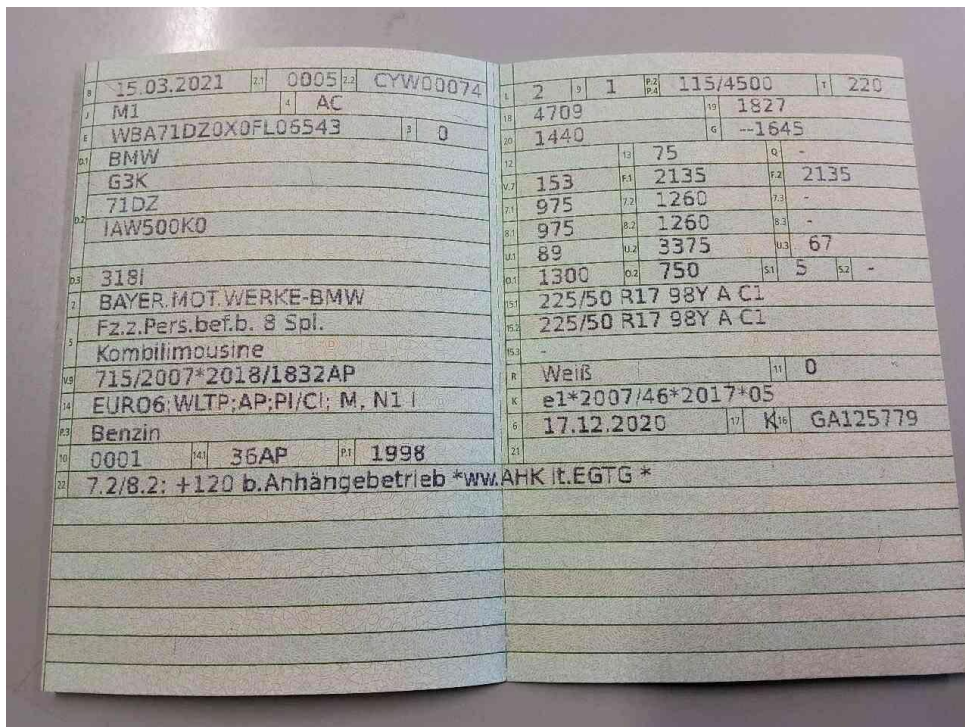 B 15.03.2021 2.1 0005 2.2 CYW00074
J M1 4 AC
E WBA71DZ0X0FL06543 3 0
D.1 BMW
D.2 G3K
71DZ
IAW500K0
D.3 318I
2 BAYER.MOT.WERKE-BMW
5 Fz.z.Pers.bef.b. 8 Spl.
Kombilimousine
V.9 715/2007*2018/1832AP
14 EURO6;WLTP;AP;PI/CI; M, N1 I
P.3 Benzin
10 0001 14.1 36AP P.1 1998
22 7.2/8.2: +120 b.Anhängebetrieb *ww.AHK lt.EGTG *
L 2 9 1 P.2 P.4 115/4500 T 220
18 4709 19 1827
20 1440 G --1645
12 13 75 Q -
V.7 153 F.1 2135 F.2 2135
7.1 975 7.2 1260 7.3 -
8.1 975 8.2 1260 8.3 -
U.1 89 U.2 3375 U.3 67
O.1 1300 O.2 750 S.1 5 S.2 -
15.1 225/50 R17 98Y A C1
15.2 225/50 R17 98Y A C1
15.3 -
R Weiß 11 0
K e1*2007/46*2017*05
6 17.12.2020 17 K 16 GA125779
21